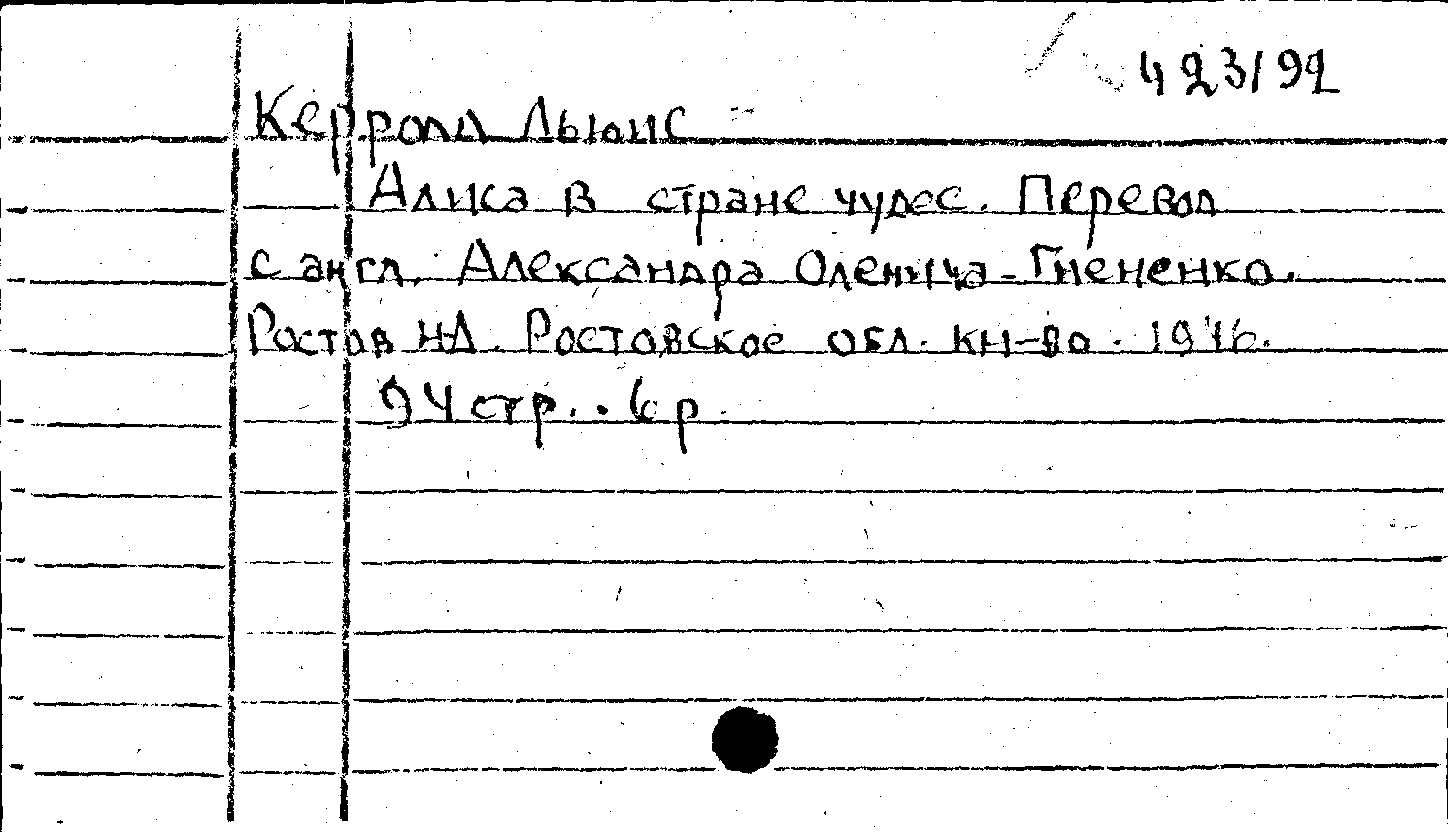 423/92
Керролл Льюис
Алиса в стране чудес. Перевод
с англ. Александра Оленича-Гнененко.
Ростов н/Д. Ростовское обл. кн-во. 1946.
94 стр.. 6 р.